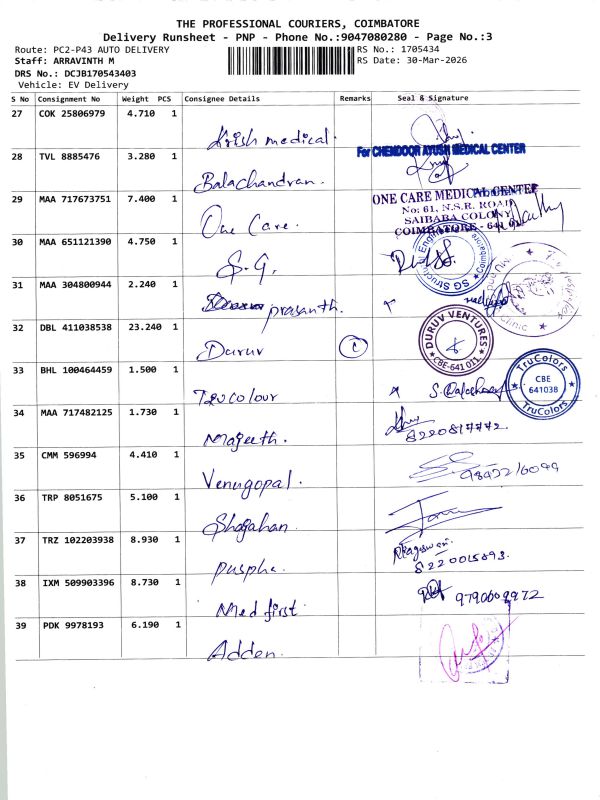 THE PROFESSIONAL COURIERS, COIMBATORE
Delivery Runsheet - PNP - Phone No.:9047080280 - Page No.:3
Route: PC2-P43 AUTO DELIVERY RS No.: 1705434
Staff: ARRAVINTH M RS Date: 30-Mar-2026
DRS No.: DCJB170543403
Vehicle: EV Delivery
S No Consignment No Weight PCS Consignee Details Remarks Seal & Signature
27 COK 25806979 4.710 1 Krish medical.
For CHENDOOR AYUSH MEDICAL CENTER
28 TVL 8885476 3.280 1 Balachandran.
29 MAA 717673751 7.400 1 One Care.
ONE CARE MEDICAL CENTER
No: 61, N.S.R. ROAD
SAIBABA COLONY
COIMBATORE - 641 011
30 MAA 651121390 4.750 1 S.G.
SG Structural Engineering Coimbatore
31 MAA 304800944 2.240 1 prasanth.
Clinic
32 DBL 411038538 23.240 1 Duruv C
DURUV VENTURES
CBE-641 011
33 BHL 100464459 1.500 1 Trucolour
TruColors
CBE
641038
TruColors
34 MAA 717482125 1.730 1 Majeeth.
8220817772.
35 CMM 596994 4.410 1 Venugopal.
36 TRP 8051675 5.100 1 Shajahan.
37 TRZ 102203938 8.930 1 puspha.
8220015893.
38 IXM 509903396 8.730 1 Med first.
39 PDK 9978193 6.190 1 Adden.